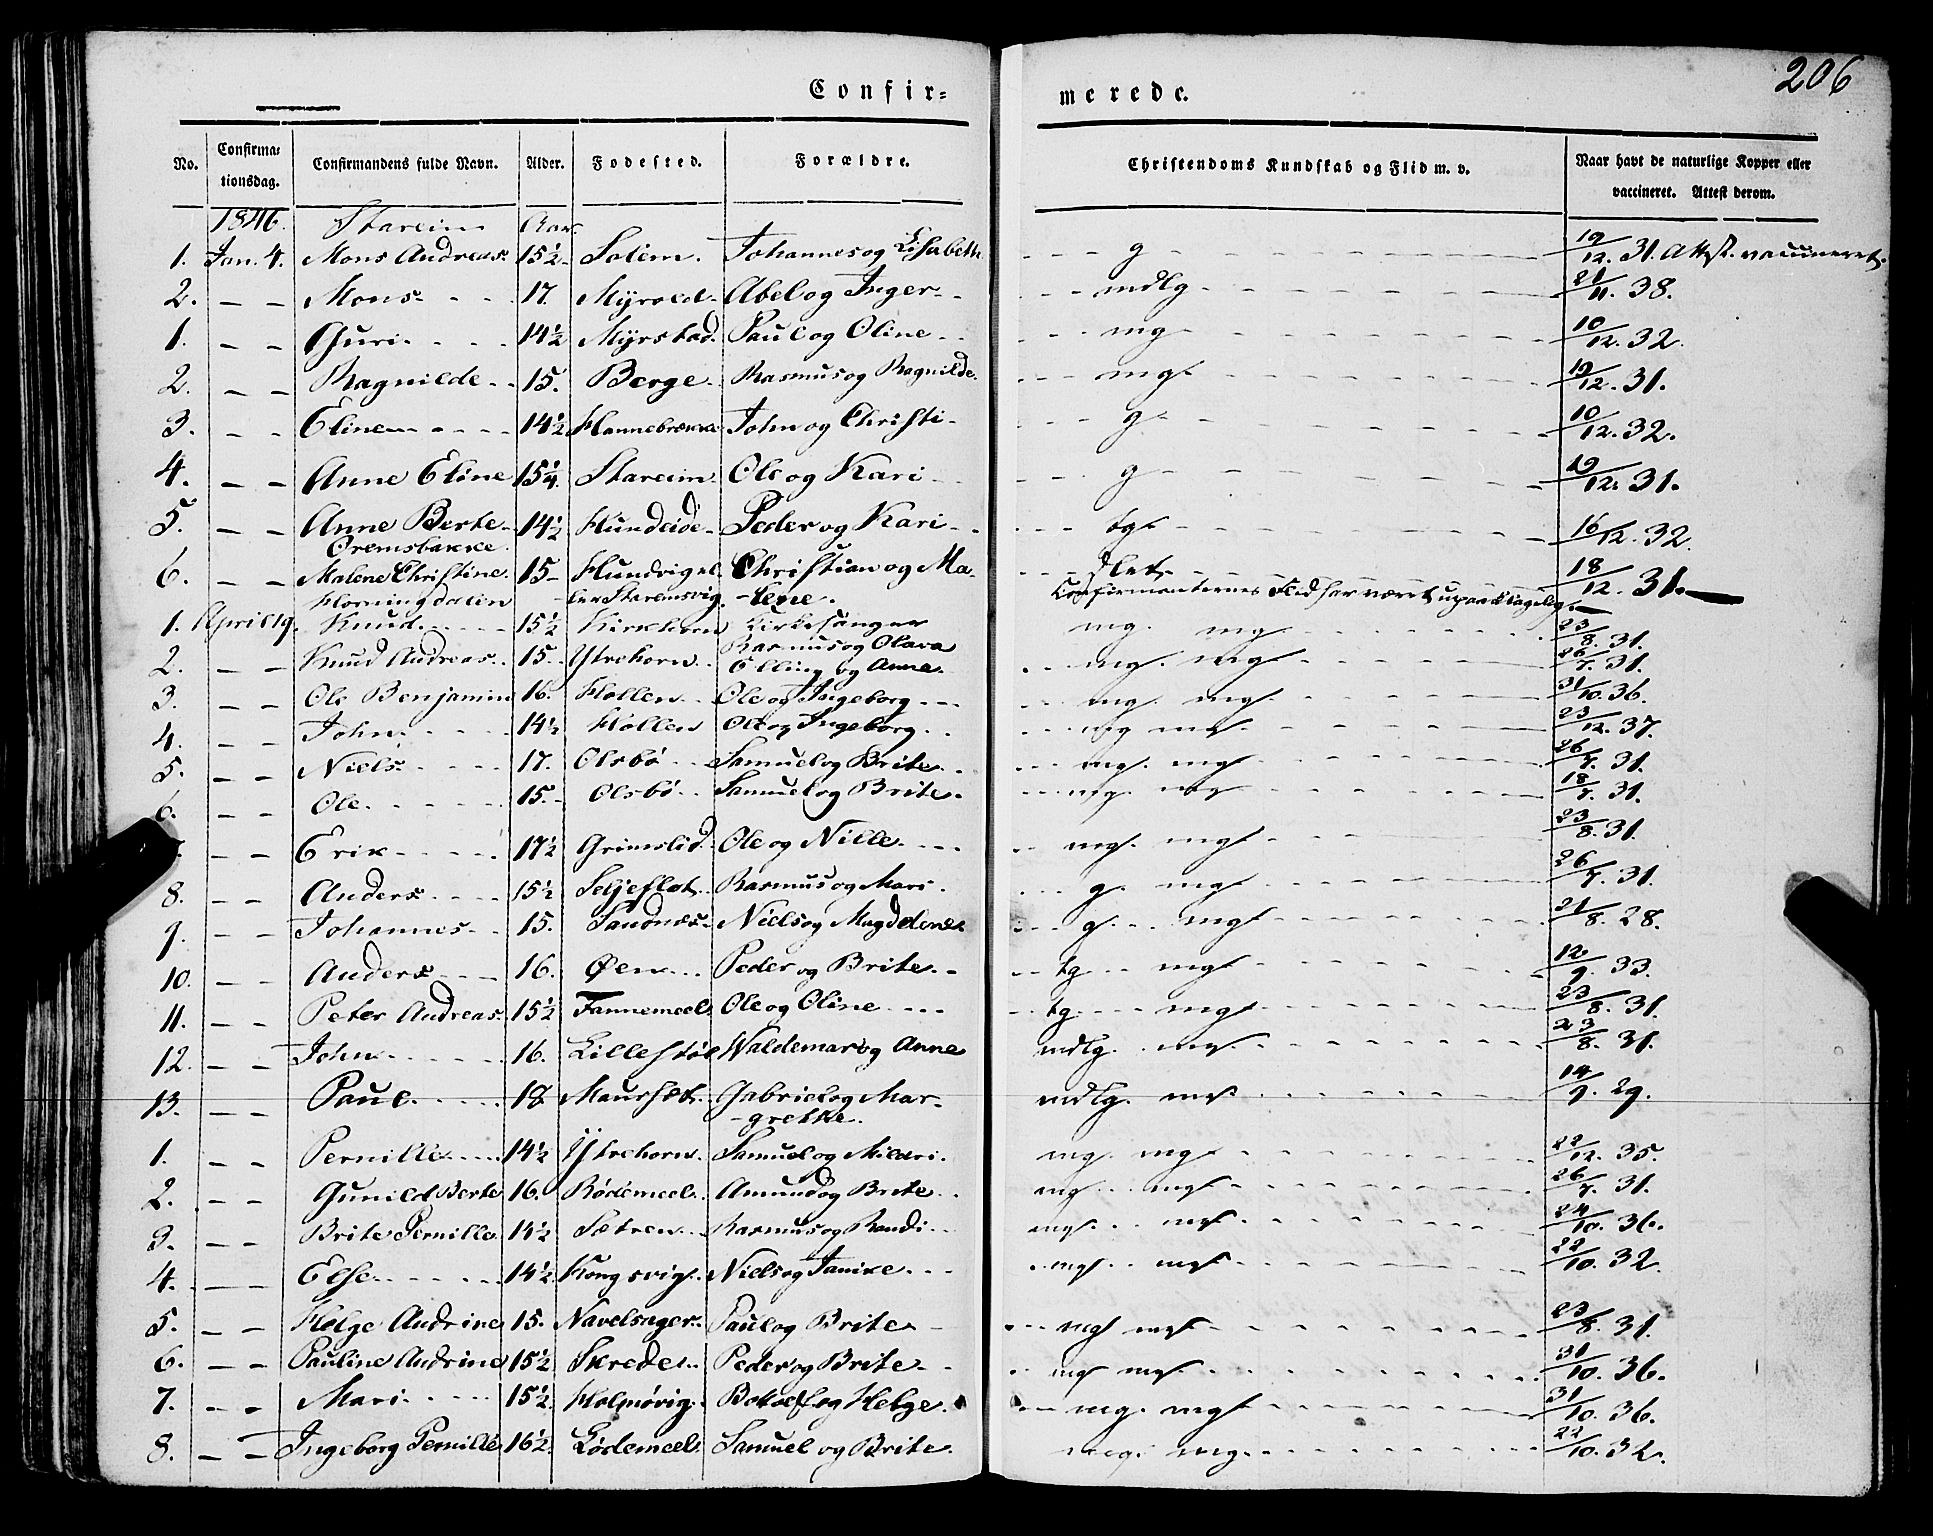 206
Confir= merede.
No. Confirma= tionsdag. Confirmandens fulde Navn. Alder. Fodested. Forældre. Christendoms Kundskab og Flid m. v. Naar havt de naturlige Kopper eller vaccineret. Attest derom.
1846. Stareim Aar.
1. Jan. 4. Mons Andreas. 15½ Solem. Johannes og Lisabeth g 19/12. 31. Attst. vaccineret.
2. — — Mons 17. Myrold Abel og Inger mdlg 21/11. 38.
1. — — Guri 14½ Myrstad. Paul og Oline mg 10/12. 32.
2. — — Ragnilde 15. Berge. Rasmus og Ragnilde. mg 19/12. 31.
3. — — Eline 14½ Hannebrække John og Christi g 10/12. 32.
4. — — Anne Eline 15¼ Stareim Ole og Kari g 19/12. 31.
5. — — Anne Berte 14½ Hundeide Peder og Kari tg 16/12. 32.
Øremsbakke.
6. — — Malene Christine. 15 Hundvig el. Christian og Ma= slet 18/12. 31.
Horningdalen ler Staremsvig. lene. Confirmanternes Flid har været upaaklagelig.
1. April 19. Knud 15½ Kirkhorn Kirkesanger mg. mg 23/8. 31.
Rasmus og Olava
2. — — Knud Andreas 15. Ytrehorn Elling og Anne mg. mg 26/7. 31.
3. — — Ole Benjamin 16. Hollen Ole og Ingeborg mg mg 31/10. 36.
4. — — John 14½ Hollen Ole og Ingeborg mg mg 23/12. 37.
5. — — Niels 17. Olsbø Samuel og Brite mg. mg 26/7. 31.
6. — — Ole 15. Olsbø Samuel og Brite mg. mg 18/7. 31.
— — Erik 17½ Grimslid Ole og Nille mg. mg 23/8. 31.
8. — — Anders 15½ Seljeflot Rasmus og Mari. g. mg 26/7. 31.
9. — — Johannes 15. Sandnes Niels og Magdelene g. mg 21/8. 28.
10. — — Anders 16. Øen Peder og Brite tg mg 12/9. 33.
11. — — Peter Andreas 15½ Tannemeel Ole og Oline tg mg 23/8. 31.
12. — — John 16. Lillestøl Waldemar og Anne mdlg. mg 23/8. 31.
13. — — Paul 18 Maurset Gabriel og Mar= mdlg. mg 14/9. 29.
grethe.
1. — — Pernille 14½ Ytrehorn. Samuel og Mildri. mg. mg 22/12. 35.
2. — — Gunild Berte 16. Rødemeel Amund og Brite mg mg 26/7. 31.
3. — — Brite Pernille 14½ Sætren Rasmus og Randi mg mg 24/10. 36.
4. — — Else 14½ Kongsvig Niels og Janike mg mg 22/10. 32.
5. — — Helge Andrine 15. Navelsager Paul og Brite mg mg 23/8. 31.
6. — — Pauline Andrine 15½ Skrede Peder og Brite mg mg 31/10. 36.
7. — — Mari 15½ Holmøvig. Botolf og Helge. mg. mg 31/10. 36.
8. — — Ingeborg Pernille 16½ Lødemeel Samuel og Brite. mg mg 22/10. 32.